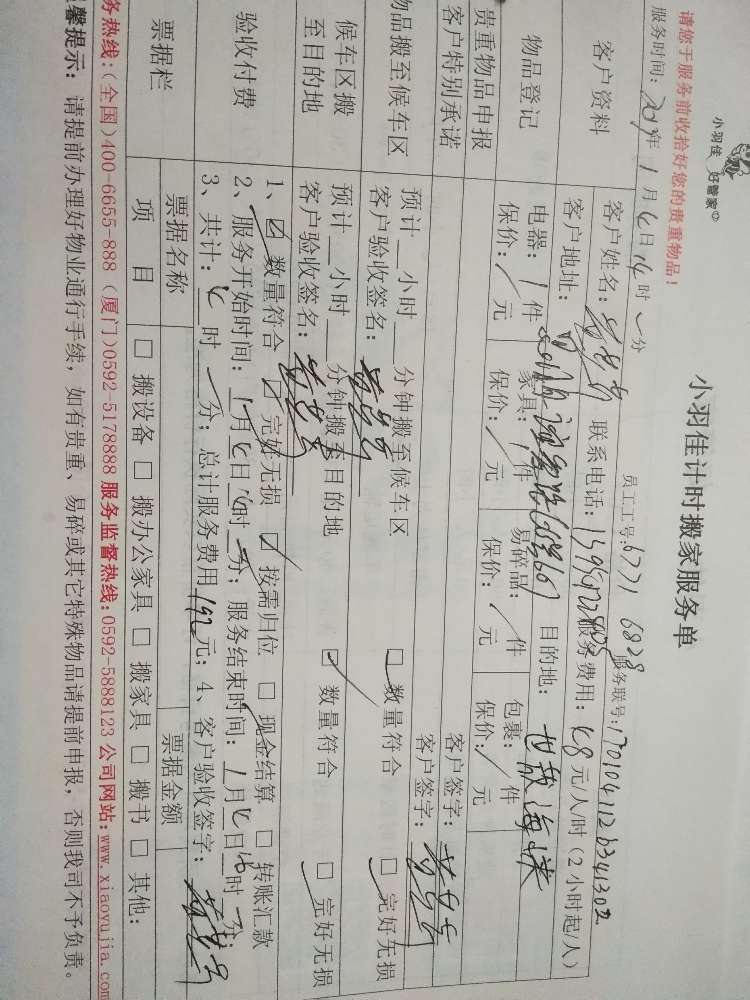 小羽佳 好管家
小羽佳计时搬家服务单
请您于服务前收拾好您的贵重物品！
员工工号: 6771 6828
服务联号:
服务时间: 2017年1月4日14时 分
客户资料
客户姓名: 联系电话: 服务费用: 48元/人/时（2小时起/人）
客户地址: 目的地: 世茂海峡
物品登记
电器: 1件 家具: 1件 易碎品: / 件 包裹: / 件
保价: / 元 保价: / 元 保价: / 元 保价: / 元
贵重物品申报
客户签字:
客户特别承诺
客户签字:
物品搬至候车区
预计 小时 分钟搬至候车区 □ 数量符合 □ 完好无损
客户验收签名:
候车区搬至目的地
预计 小时 分钟搬至目的地 □ 数量符合 □ 完好无损
客户验收签名:
验收付费
1、☑ 数量符合 ☑ 完好无损 ☑ 按需归位 □ 现金结算 □ 转账汇款
2、服务开始时间: 1月4日14时 分; 服务结束时间: 1月4日16时 分;
3、共计: 时 分; 总计服务费用 192 元; 4、客户验收签字:
票据栏
票据名称 票据金额
项 目 □ 搬设备 □ 搬办公家具 □ 搬家具 □ 搬书 □ 其他:
务热线:(全国)400-6655-888 (厦门)0592-5178888 服务监督热线:0592-5888123 公司网站:www.xiaoyujia.com
馨提示: 请提前办理好物业通行手续, 如有贵重、易碎或其它特殊物品请提前申报, 否则我司不予负责。